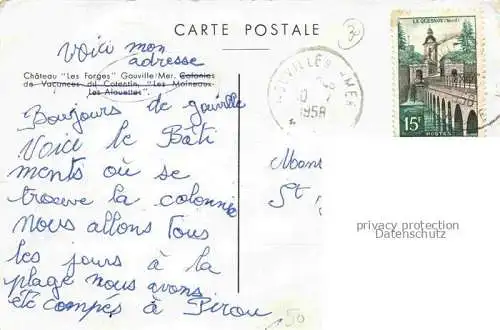 CARTE POSTALE
3
LE QUESNOY (Nord)
Voici mon
adresse
Château "Les Forges" Gouville/Mer. Colonies
de Vacances du Cotentin, "Les Moineaux-
Les Alouettes".
GOUVILLE S MER
1958
15F
POSTES
Boujours de gouville
Voici le Bâti
ments où se
trouve la colonnie
Nous allons tous
les jours à la
plage nous avons
été compés à Pirou
Mons
St
privacy protection
Datenschutz
50